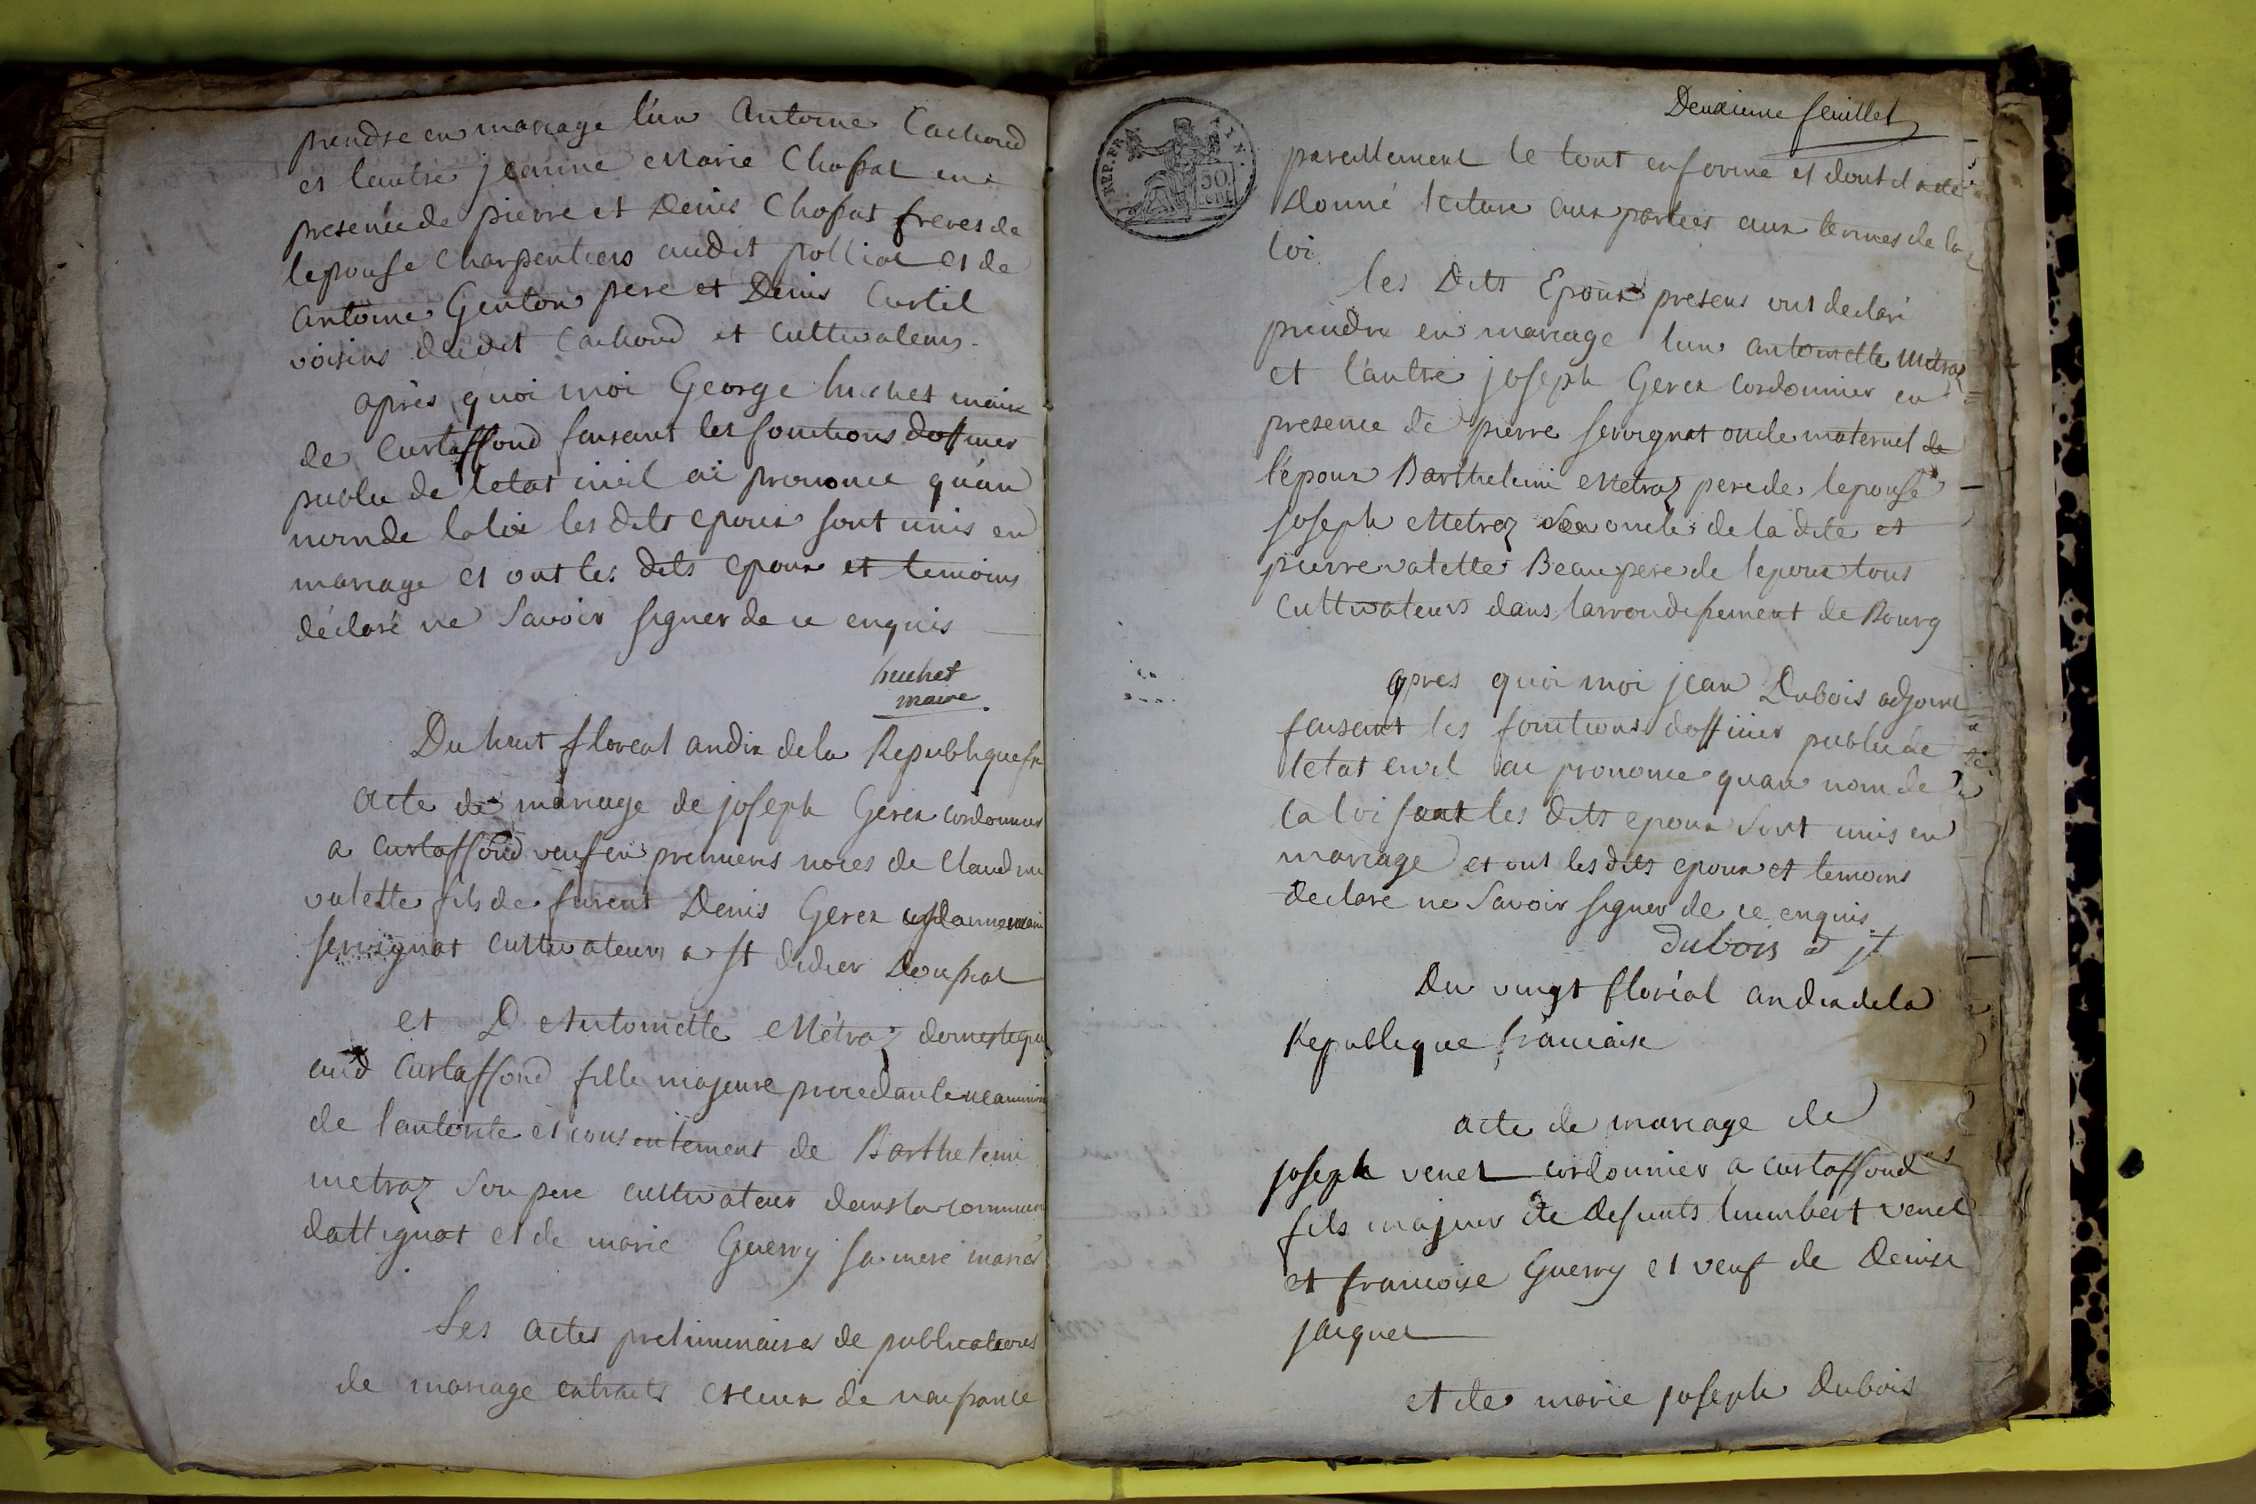 prendre en mariage l'un Antoine Cachoud
et lautre jeanne Marie Chossat en
presence de pierre et Denis Chossat freres de
lepouse charpentiers audit polliat et de
antoine Genton pere et Denis Curtil
voisins dudit Cachoud et cultivateurs.
après quoi moi George huchet maire
de Curtaffond faisant les fonctions dofficier
public de letat civil ai prononcé qu'au
nom de la loi les dits epoux sont unis en
mariage et ont les dits epoux et temoins
déclaré ne Savoir signer de ce enquis
huchet
maire
Du huit floreal an dix de la Republique fr
acte de mariage de joseph Gerex cordonnier
a Curtaffond veuf en premieres noces de Claudine
valette fils de furent Denis Gerex et
servignat cultivateurs a St didier Doussiat
et D Antoinette Métraz domestique
aud Curtaffond fille majeure procedante neanmoins
de lautorité et consentement de Barthelemi
metraz Son pere cultivateur dans la commune
dattignat et de marie Guerry sa mere mariés
Les actes preliminaires de publications
de mariage extraits et ceux de naissance
Deuxieme feuillet
REP. FRA
50
CENT
pareillement le tout en forme et dont il a été
Donné lecture aux parties aux termes de la
loi.
les Dits Epoux presens ont declaré
prendre en mariage lun antoinette Métraz
et l'autre joseph Gerex cordonnier en
presence de pierre servignat oncle maternel de
l'epoux Barthelemi Metraz pere de lepouse
joseph Metraz oncle de la dite et
pierre valette Beaupere de lepoux tous
cultivateurs dans larrondissement de Bourg
apres quoi moi jean Dubois adjoint
faisant les fonctions dofficier public de
letat civil ai prononcé quau nom de
la loi sont les dits epoux sont unis en
mariage et ont les dits epoux et temoins
declaré ne Savoir signer de ce enquis.
dubois adjt
Du vingt floréal an dix de la
Republique francaise
acte de mariage de
joseph venet cordonnier a curtaffond
fils majeur de defunts humbert venet
et francoise Guerry et veuf de Denise
jacquet
et de marie joseph Dubois